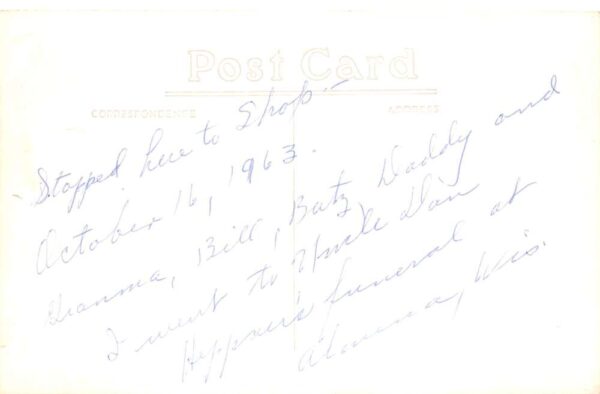 Post Card
CORRESPONDENCE
ADDRESS
Stopped here to Shop -
October 16, 1963.
Granma, Bill, Batz, Daddy and
I went to Uncle Dan
Heppner's funeral at
Wis.